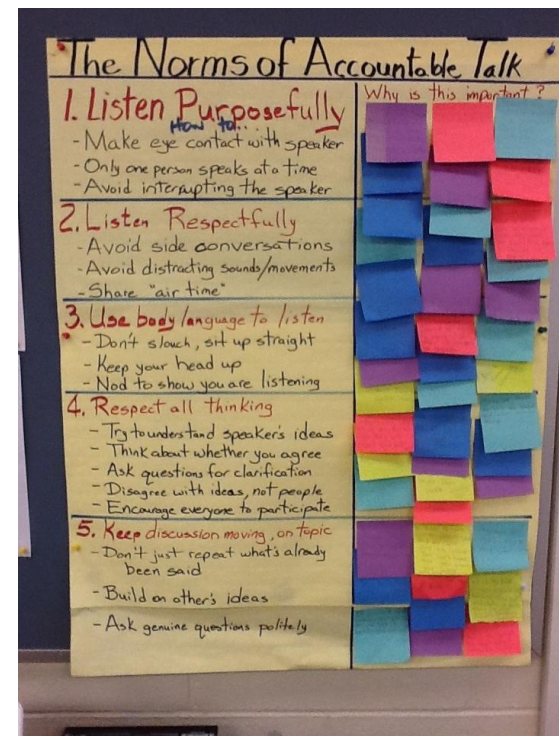 The Norms of Accountable Talk
1. Listen Purposefully
How to...
- Make eye contact with speaker
- Only one person speaks at a time
- Avoid interrupting the speaker
2. Listen Respectfully
- Avoid side conversations
- Avoid distracting sounds/movements
- Share "air time"
3. Use body language to listen
- Don't slouch, sit up straight
- Keep your head up
- Nod to show you are listening
4. Respect all thinking
- Try to understand speaker's ideas
- Think about whether you agree
- Ask questions for clarification
- Disagree with ideas, not people
- Encourage everyone to participate
5. Keep discussion moving, on topic
- Don't just repeat what's already
been said
- Build on other's ideas
- Ask genuine questions politely
Why is this important?